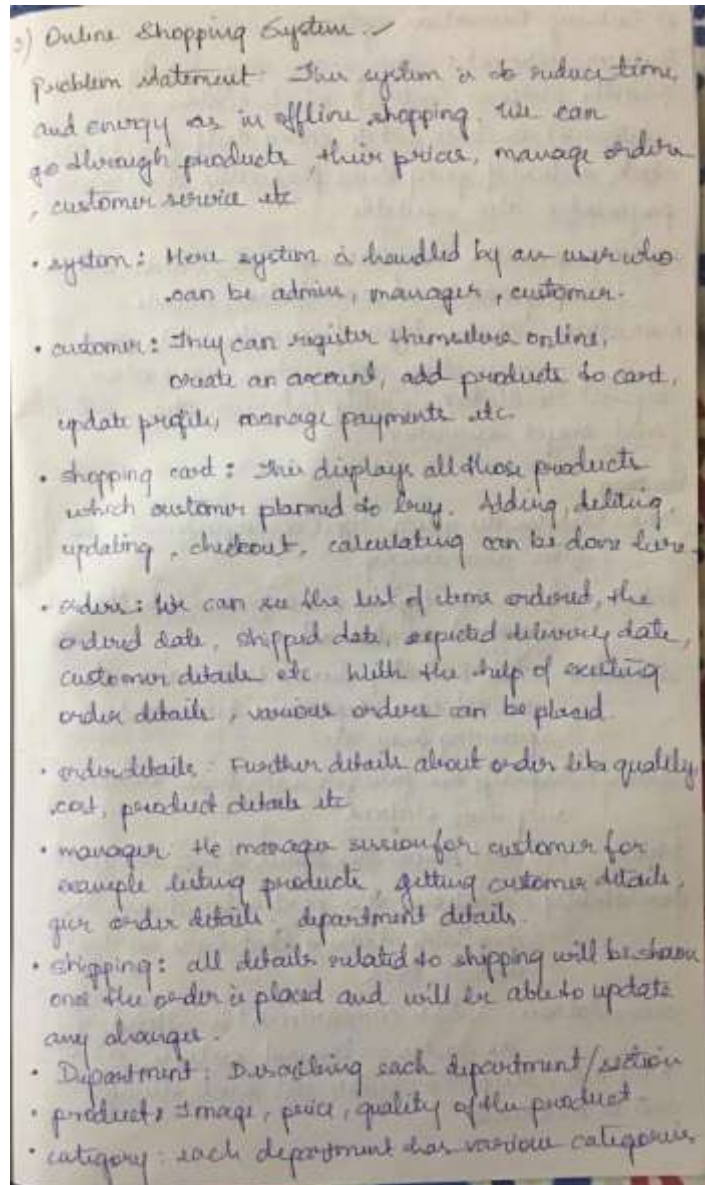 3) Online Shopping System :-
Problem statement: This system is to reduce time
and energy as in offline shopping. We can
go through products their prices, manage orders
, customer service etc
• system: Here system is handled by an user who
can be admin, manager, customer.
• customer: They can register themselves online,
create an account, add products to card,
update profile, manage payments etc.
• shopping card: This displays all those products
which customer planned to buy. Adding, deleting,
updating, checkout, calculating can be done here.
• orders: We can see the list of items ordered, the
ordered date, shipped date, expected delivery date,
customer details etc. With the help of existing
order details, various orders can be placed.
• orderdetails: Further details about order like quality,
cost, product details etc
• manager: He manages session for customer for
example listing products, getting customer details,
give order details, department details.
• shipping: all details related to shipping will be shown
once the order is placed and will be able to update
any changes.
• Department: Describing each department/section
• product: Image, price, quality of the product.
• category: each department has various categories.